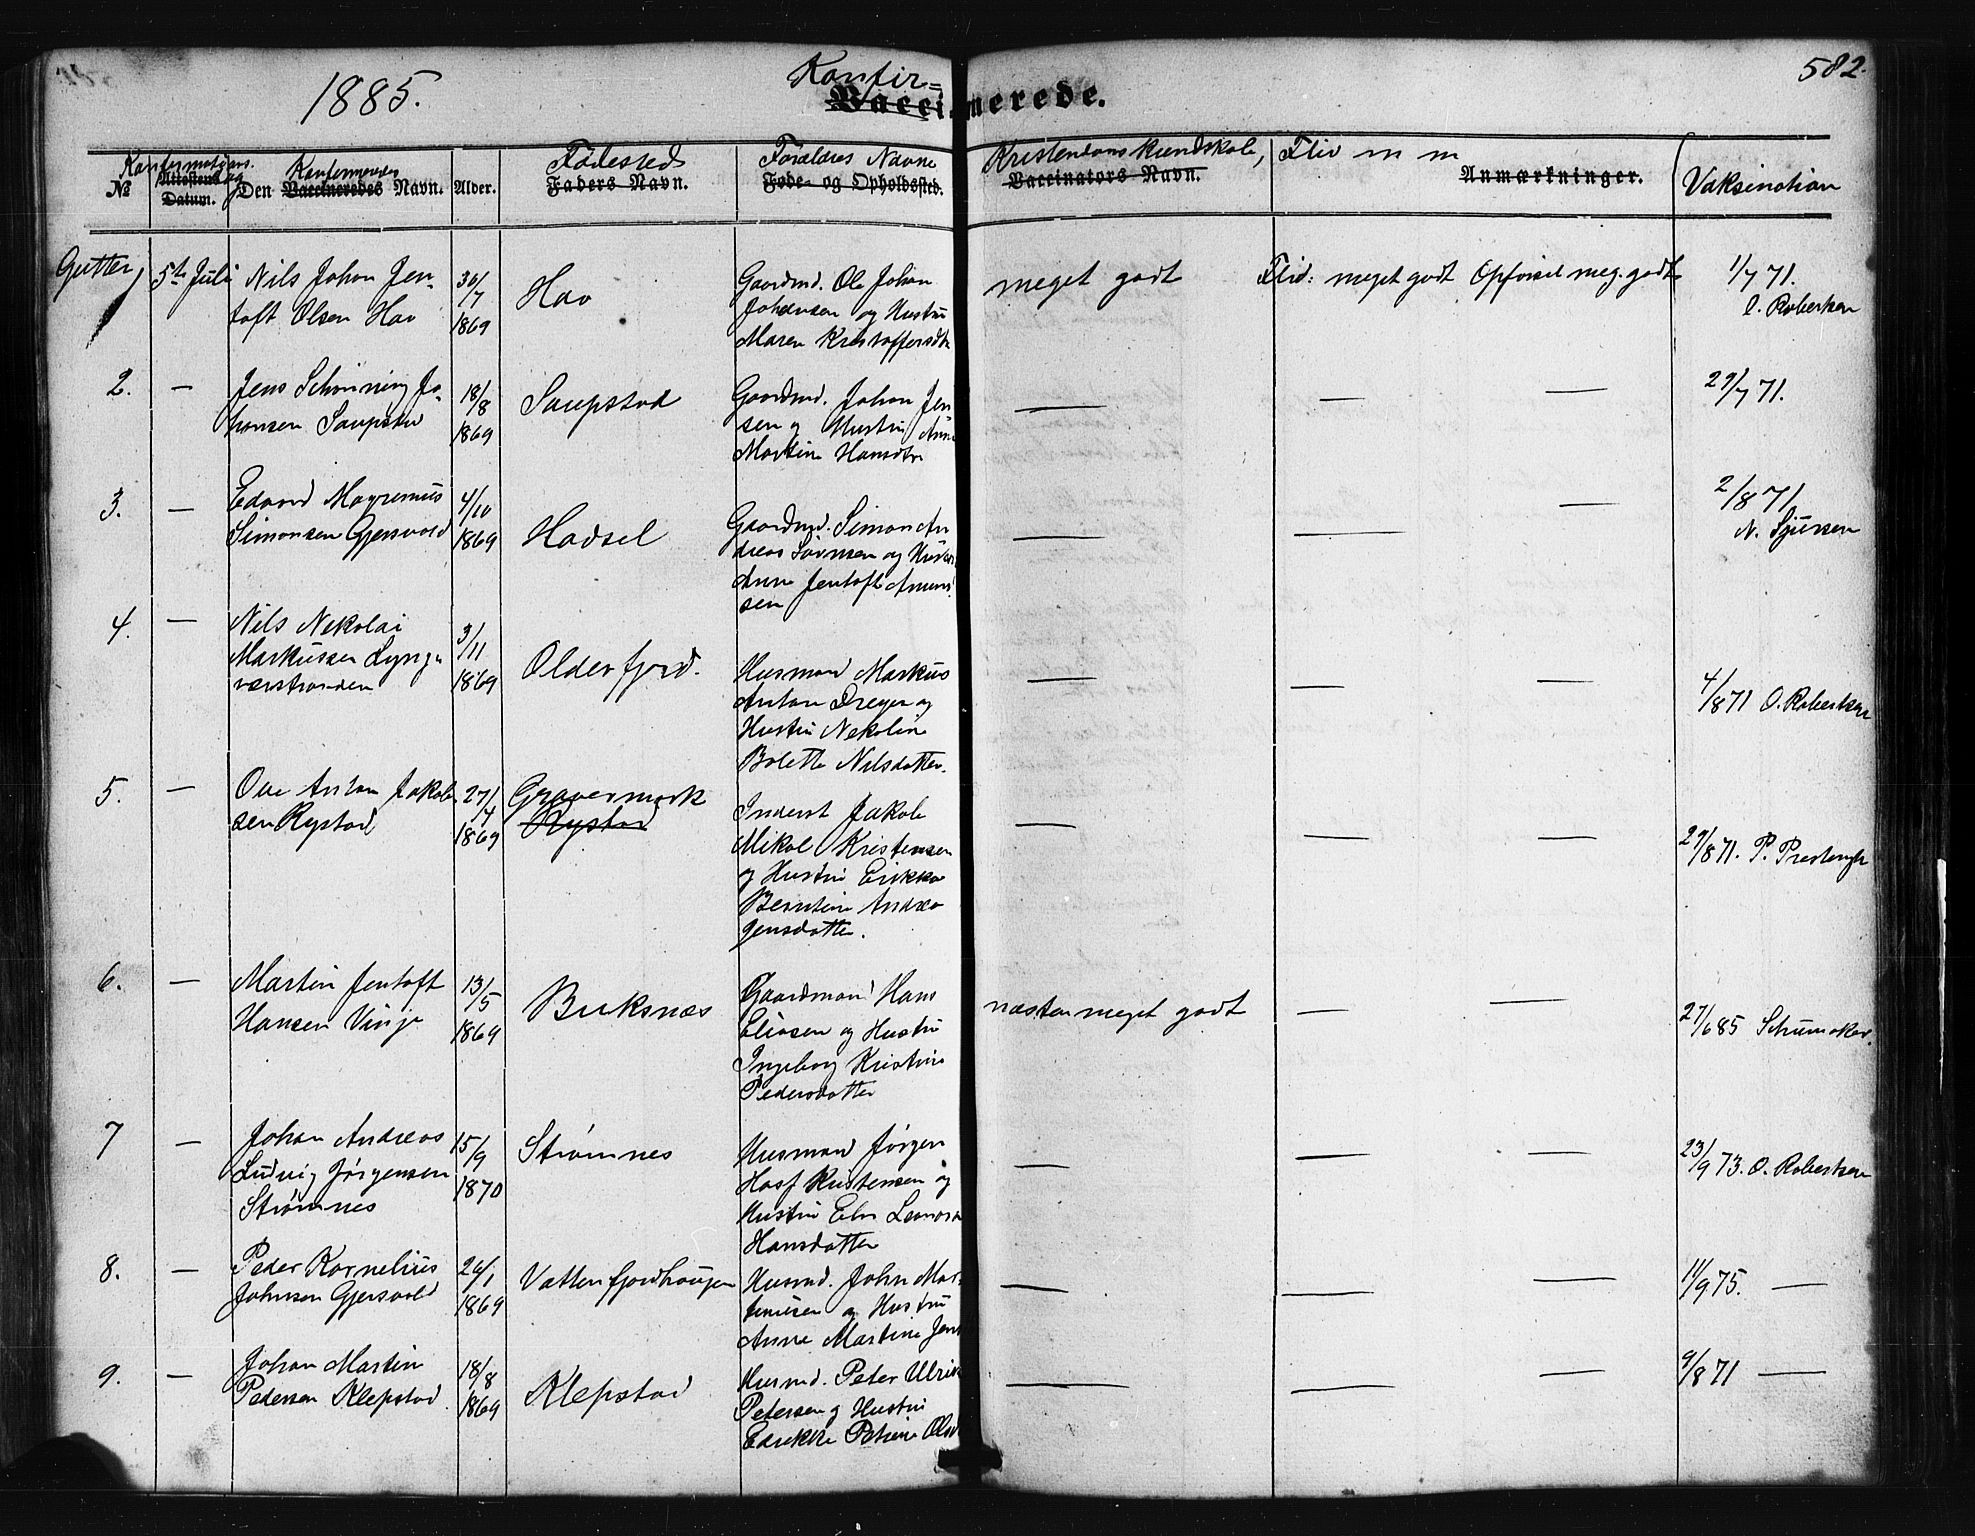 1885.
Konfir=
Vaccinerede.
582.
Konfirmations
No Attestens Datum. og
Konfirmeredes
Den Vaccineredes Navn.
Alder.
Fødested
Faders Navn.
Forældres Navne
Føde- og Opholdssted.
Kristendomskundskab,
Vaccinators Navn.
Flid m m
Anmærkninger.
Vaksination
Gutter, 5te Juli Nils Johan Jen-
toft Olsen Hov
30/7 1869
Hov
Gaardmd. Ole Johan
Johansen og Hustru
Maren Kristoffersdtr
meget godt
Flid: meget godt Opførsel meg. godt
1/7 71.
O. Robertsen
2. — Jens Schønning Jo-
hansen Saupstad
18/8 1869
Saupstad
Gaardmd. Johan Jen
sen og Hustru Anne
Martine Hansdtr
— — —
29/7 71.
3. — Edvard
Simonsen Gjersvold
4/10 1869
Hadsel
Gaardmd. Simon An
dreas Sørensen og Hustru
Anne Jentoft Amund
sen
— — —
2/8 71
N. Sjursen
4. — Nils Nekolai
Markussen Lyng
værstranden
3/11 1869
Olderfjord.
Husmand Markus
Anton Dreyer og
Hustru Nekoline
Bolette Nilsdatter.
— — —
4/8 71 O. Robertsen
5. — Ove Anton Jakob
sen Rystad
27/4 1869
Gravermark
Rystad
Inderst Jakob
Mikal Kristensen
og Hustru Erikka
Berntine Andrea
Jensdatter.
— — —
29/8 71. P.
6. — Martin Jentoft
Hansen Vinje
13/5 1869
Buksnæs
Gaardmand Hans
Eliasen og Hustru
Ingeborg Kristine
Pedersdatter
næsten meget godt
— —
27/6 85 Schumaker.
7 — Johan Andreas
Ludvig Jørgensen
Strømnes
15/9 1870
Strømnes
Husmand Jørgen
Hosf Kristensen og
Hustru Elen Leonora
Hansdatter
— — —
23/9 73. O. Robertsen
8. — Peder Kornelius
Johnsen Gjersvold
24/1 1869
Vatterfjordhaugen
Husmd. John Mar
tinusen og Hustru
Anne Martine Jens
— — —
11/9 75. —
9. — Johan Martin
Pedersen Klepstad
18/8 1869
Klepstad
Husmd. Peter Ulrik
Petersen og Hustru
Edrikke Petrine Olsd
— — —
9/8 71 —